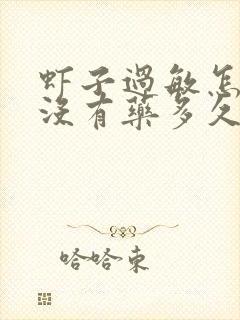 虾子過敏怎
没有藥多久
哈哈東